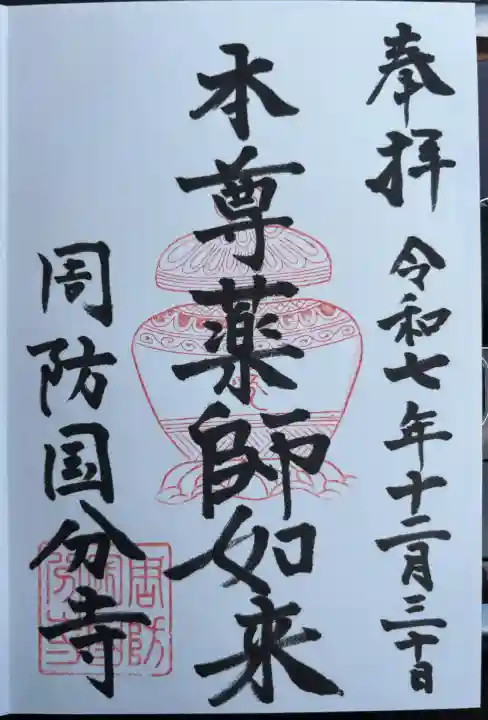 奉拝 令和七年十二月三十日
本尊薬師如来
周防国分寺
周防国分寺